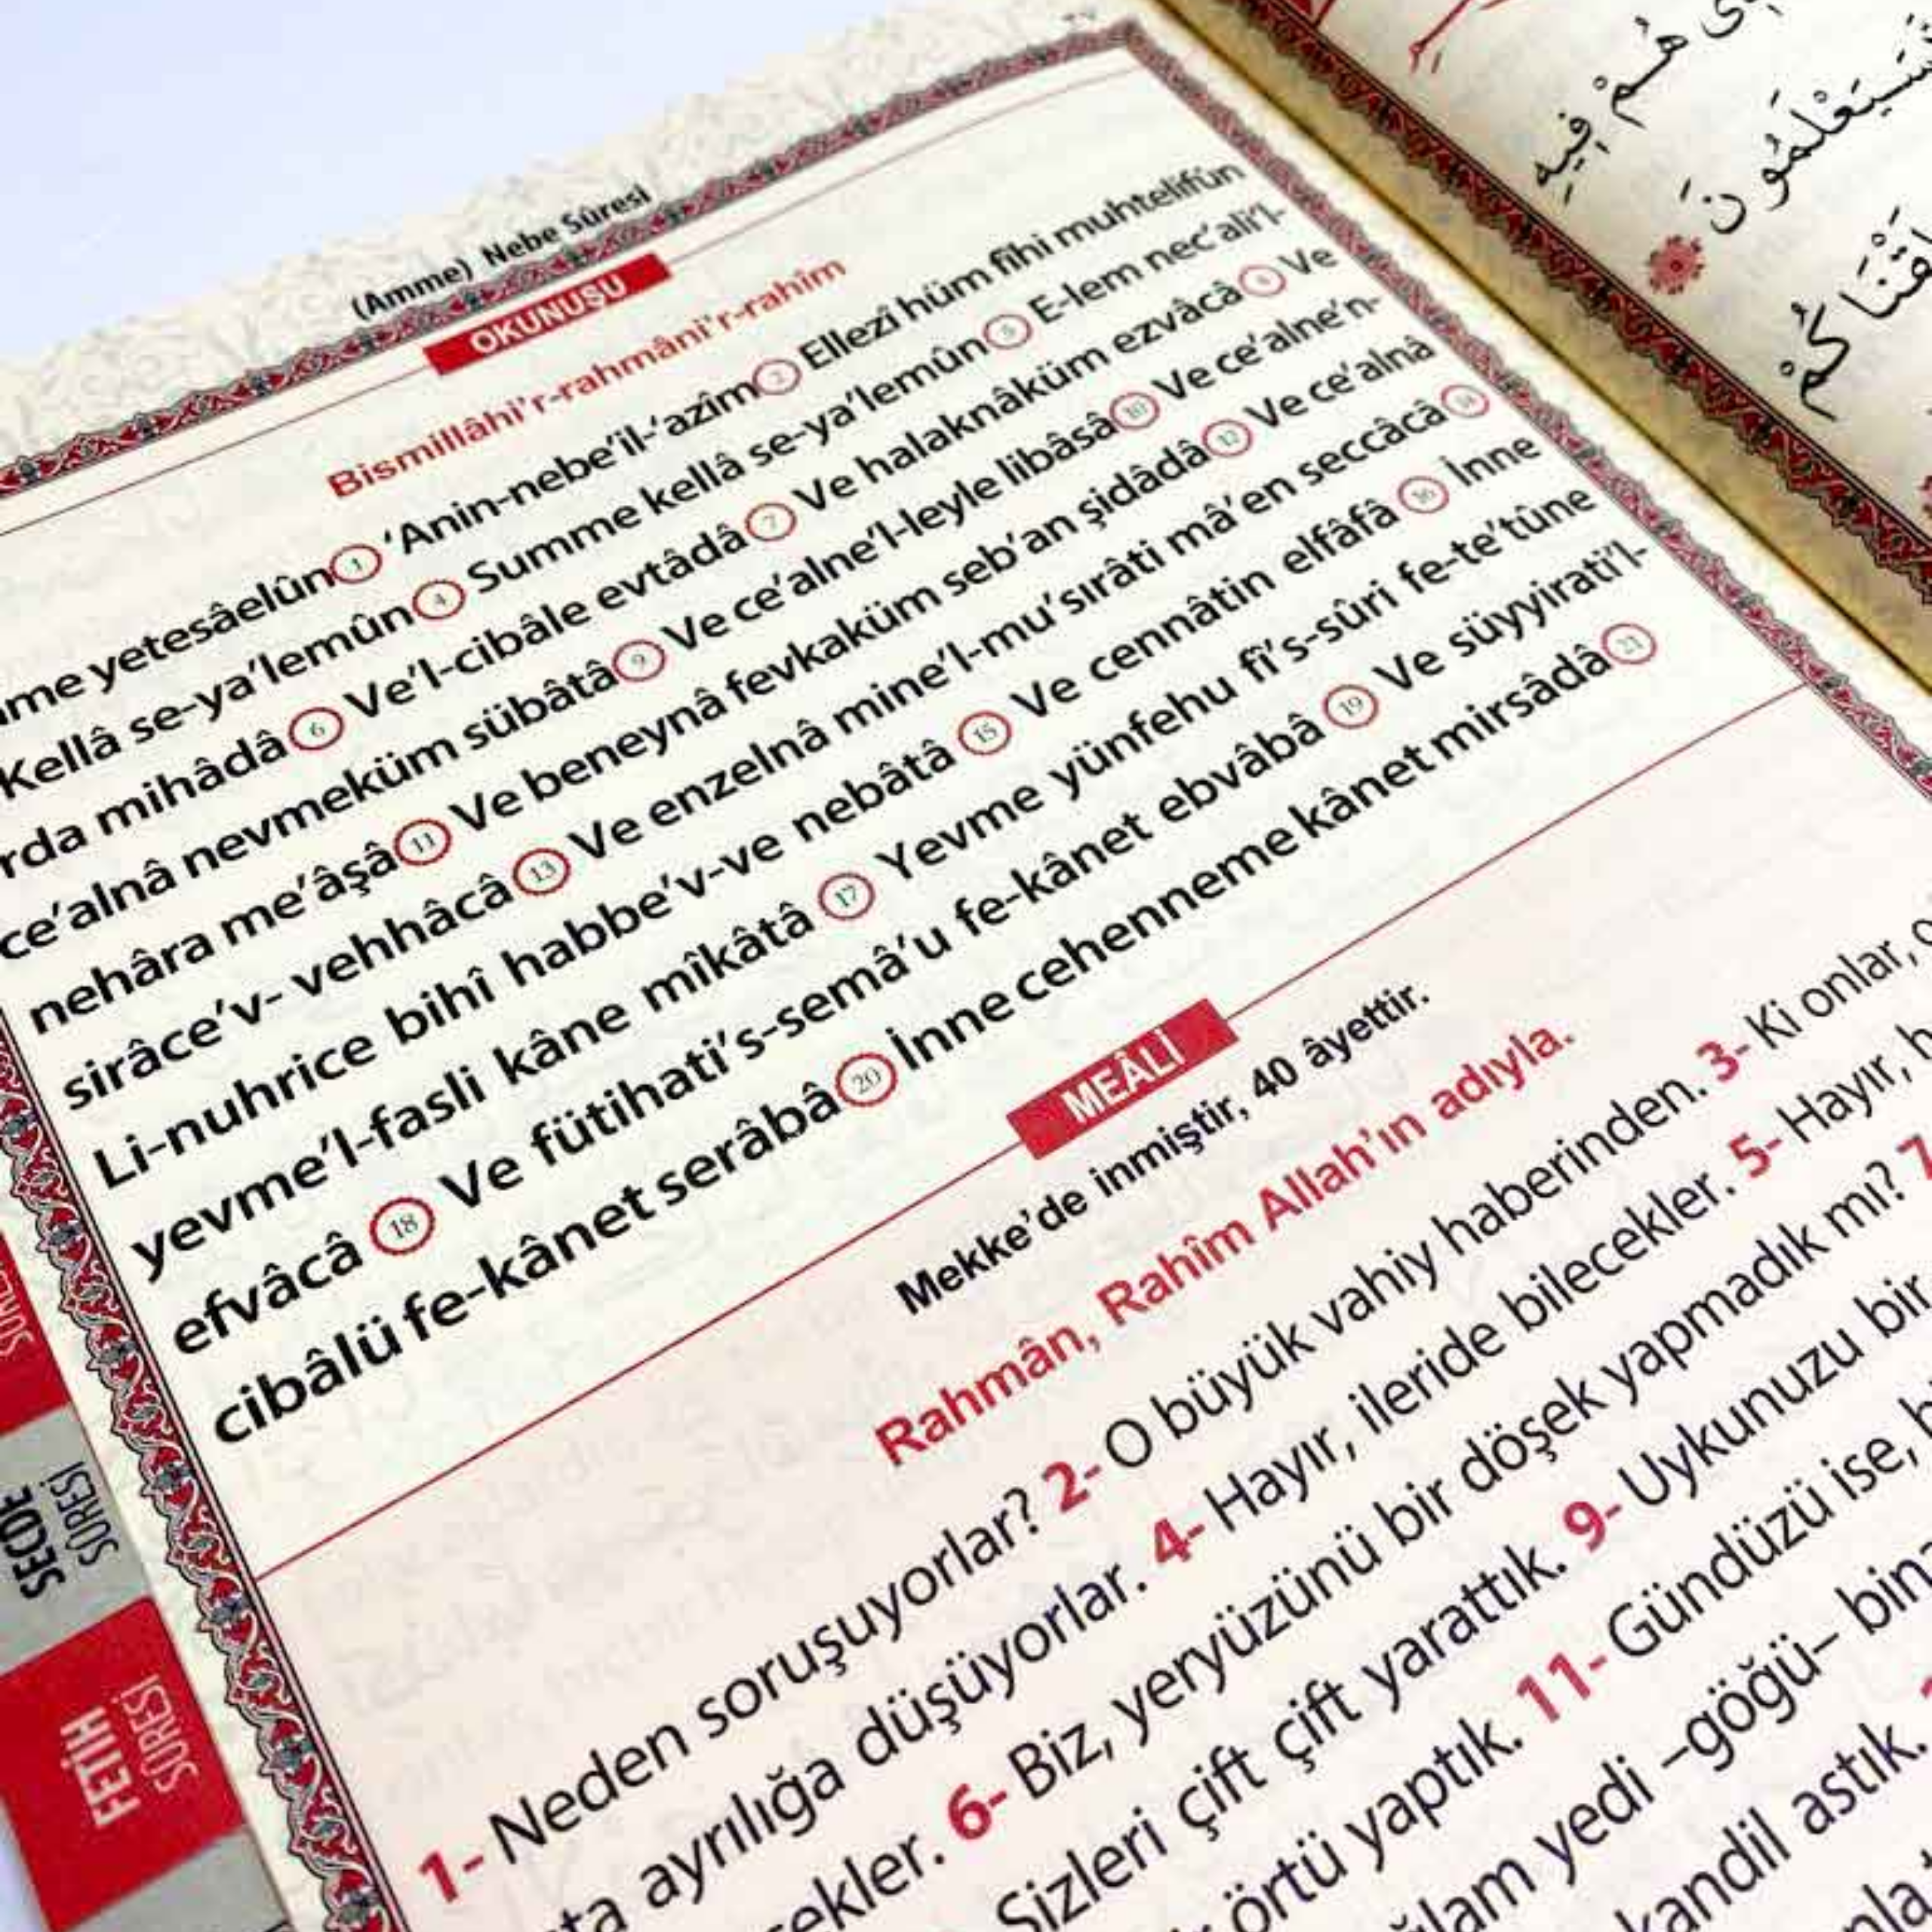 (Amme) Nebe Sûresi
OKUNUŞU
Bismillâhi'r-rahmâni'r-rahîm
yetesâelûn 1 'Anin-nebe'il-'azîm 2 Ellezî hüm fîhi muhtelifûn
Kellâ se-ya'lemûn 4 Summe kellâ se-ya'lemûn 5 E-lem nec'ali'l-
mihâdâ 6 Ve'l-cibâle evtâdâ 7 Ve halaknâküm ezvâcâ 8 Ve
ce'alnâ nevmeküm sübâtâ 9 Ve ce'alne'l-leyle libâsâ 10 Ve ce'alne'n-
nehâra me'âşâ 11 Ve beneynâ fevkaküm seb'an şidâdâ 12 Ve ce'alnâ
sirâce'v- vehhâcâ 13 Ve enzelnâ mine'l-mu'sırâti mâ'en seccâcâ 14
Li-nuhrice bihî habbe'v-ve nebâtâ 15 Ve cennâtin elfâfâ 16 İnne
yevme'l-fasli kâne mîkâtâ 17 Yevme yünfehu fi's-sûri fe-te'tûne
efvâcâ 18 Ve fütihati's-semâ'u fe-kânet ebvâbâ 19 Ve süyyirati'l-
cibâlü fe-kânet serâbâ 20 İnne cehenneme kânet mirsâdâ 21
MEÂLİ
Mekke'de inmiştir, 40 âyettir.
Rahmân, Rahîm Allah'ın adıyla.
1- Neden soruşuyorlar? 2- O büyük vahiy haberinden. 3- Ki onlar,
ayrılığa düşüyorlar. 4- Hayır, ileride bilecekler. 5- Hayır,
6- Biz, yeryüzünü bir döşek yapmadık mı? 7
Sizleri çift çift yarattık. 9- Uykunuzu bir
örtü yaptık. 11- Gündüzü ise,
yedi –göğü–
kandil astık.
SECDE
SÛRESİ
FETİH
SÛRESİ
هُمْ فِيهِ
سَيَعْلَمُونَ